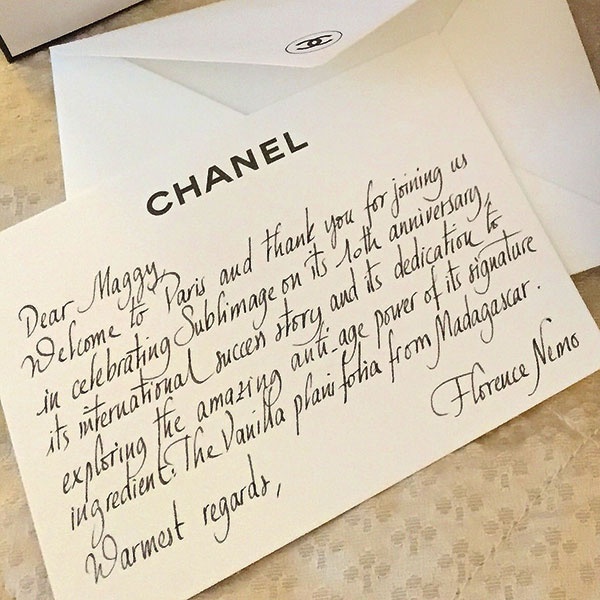 CHANEL
Dear Maggy,
Welcome to Paris and thank you for joining us
in celebrating Sublimage on its 10th anniversary,
its international success story and its dedication to
exploring the amazing anti-age power of its signature
ingredient: The Vanilla planifolia from Madagascar.
Warmest regards,
Florence Nemo